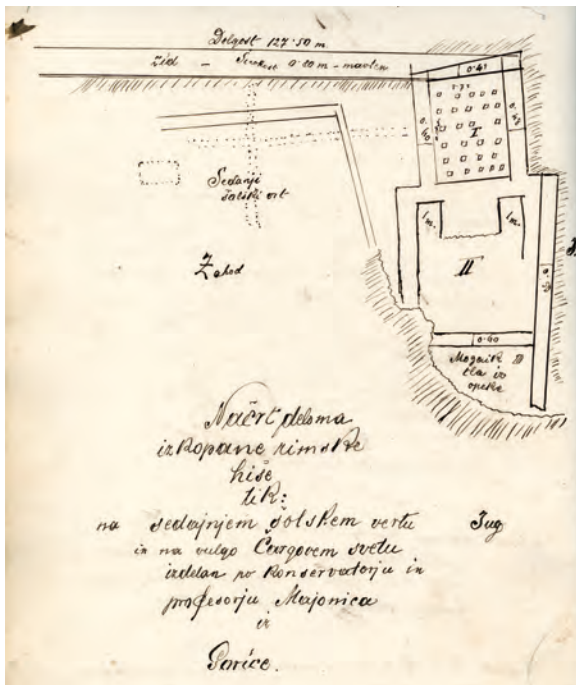 Dolgost 127·50 m
zid – 0·60 m –
0·41
0·60
0·45
I
Sedanji
šolski vrt
1 m.
1 m.
Zahod
II
0·60
Mozaik
tla iz
opeke
Načrt deloma
izkopane rimske
hiše
tik:
na sedajnjem šolskem vertu
Jug
in na vulgo Čargovem svetu
izdelan po konservatorju in
profesorju Majonica
iz
Gorice.